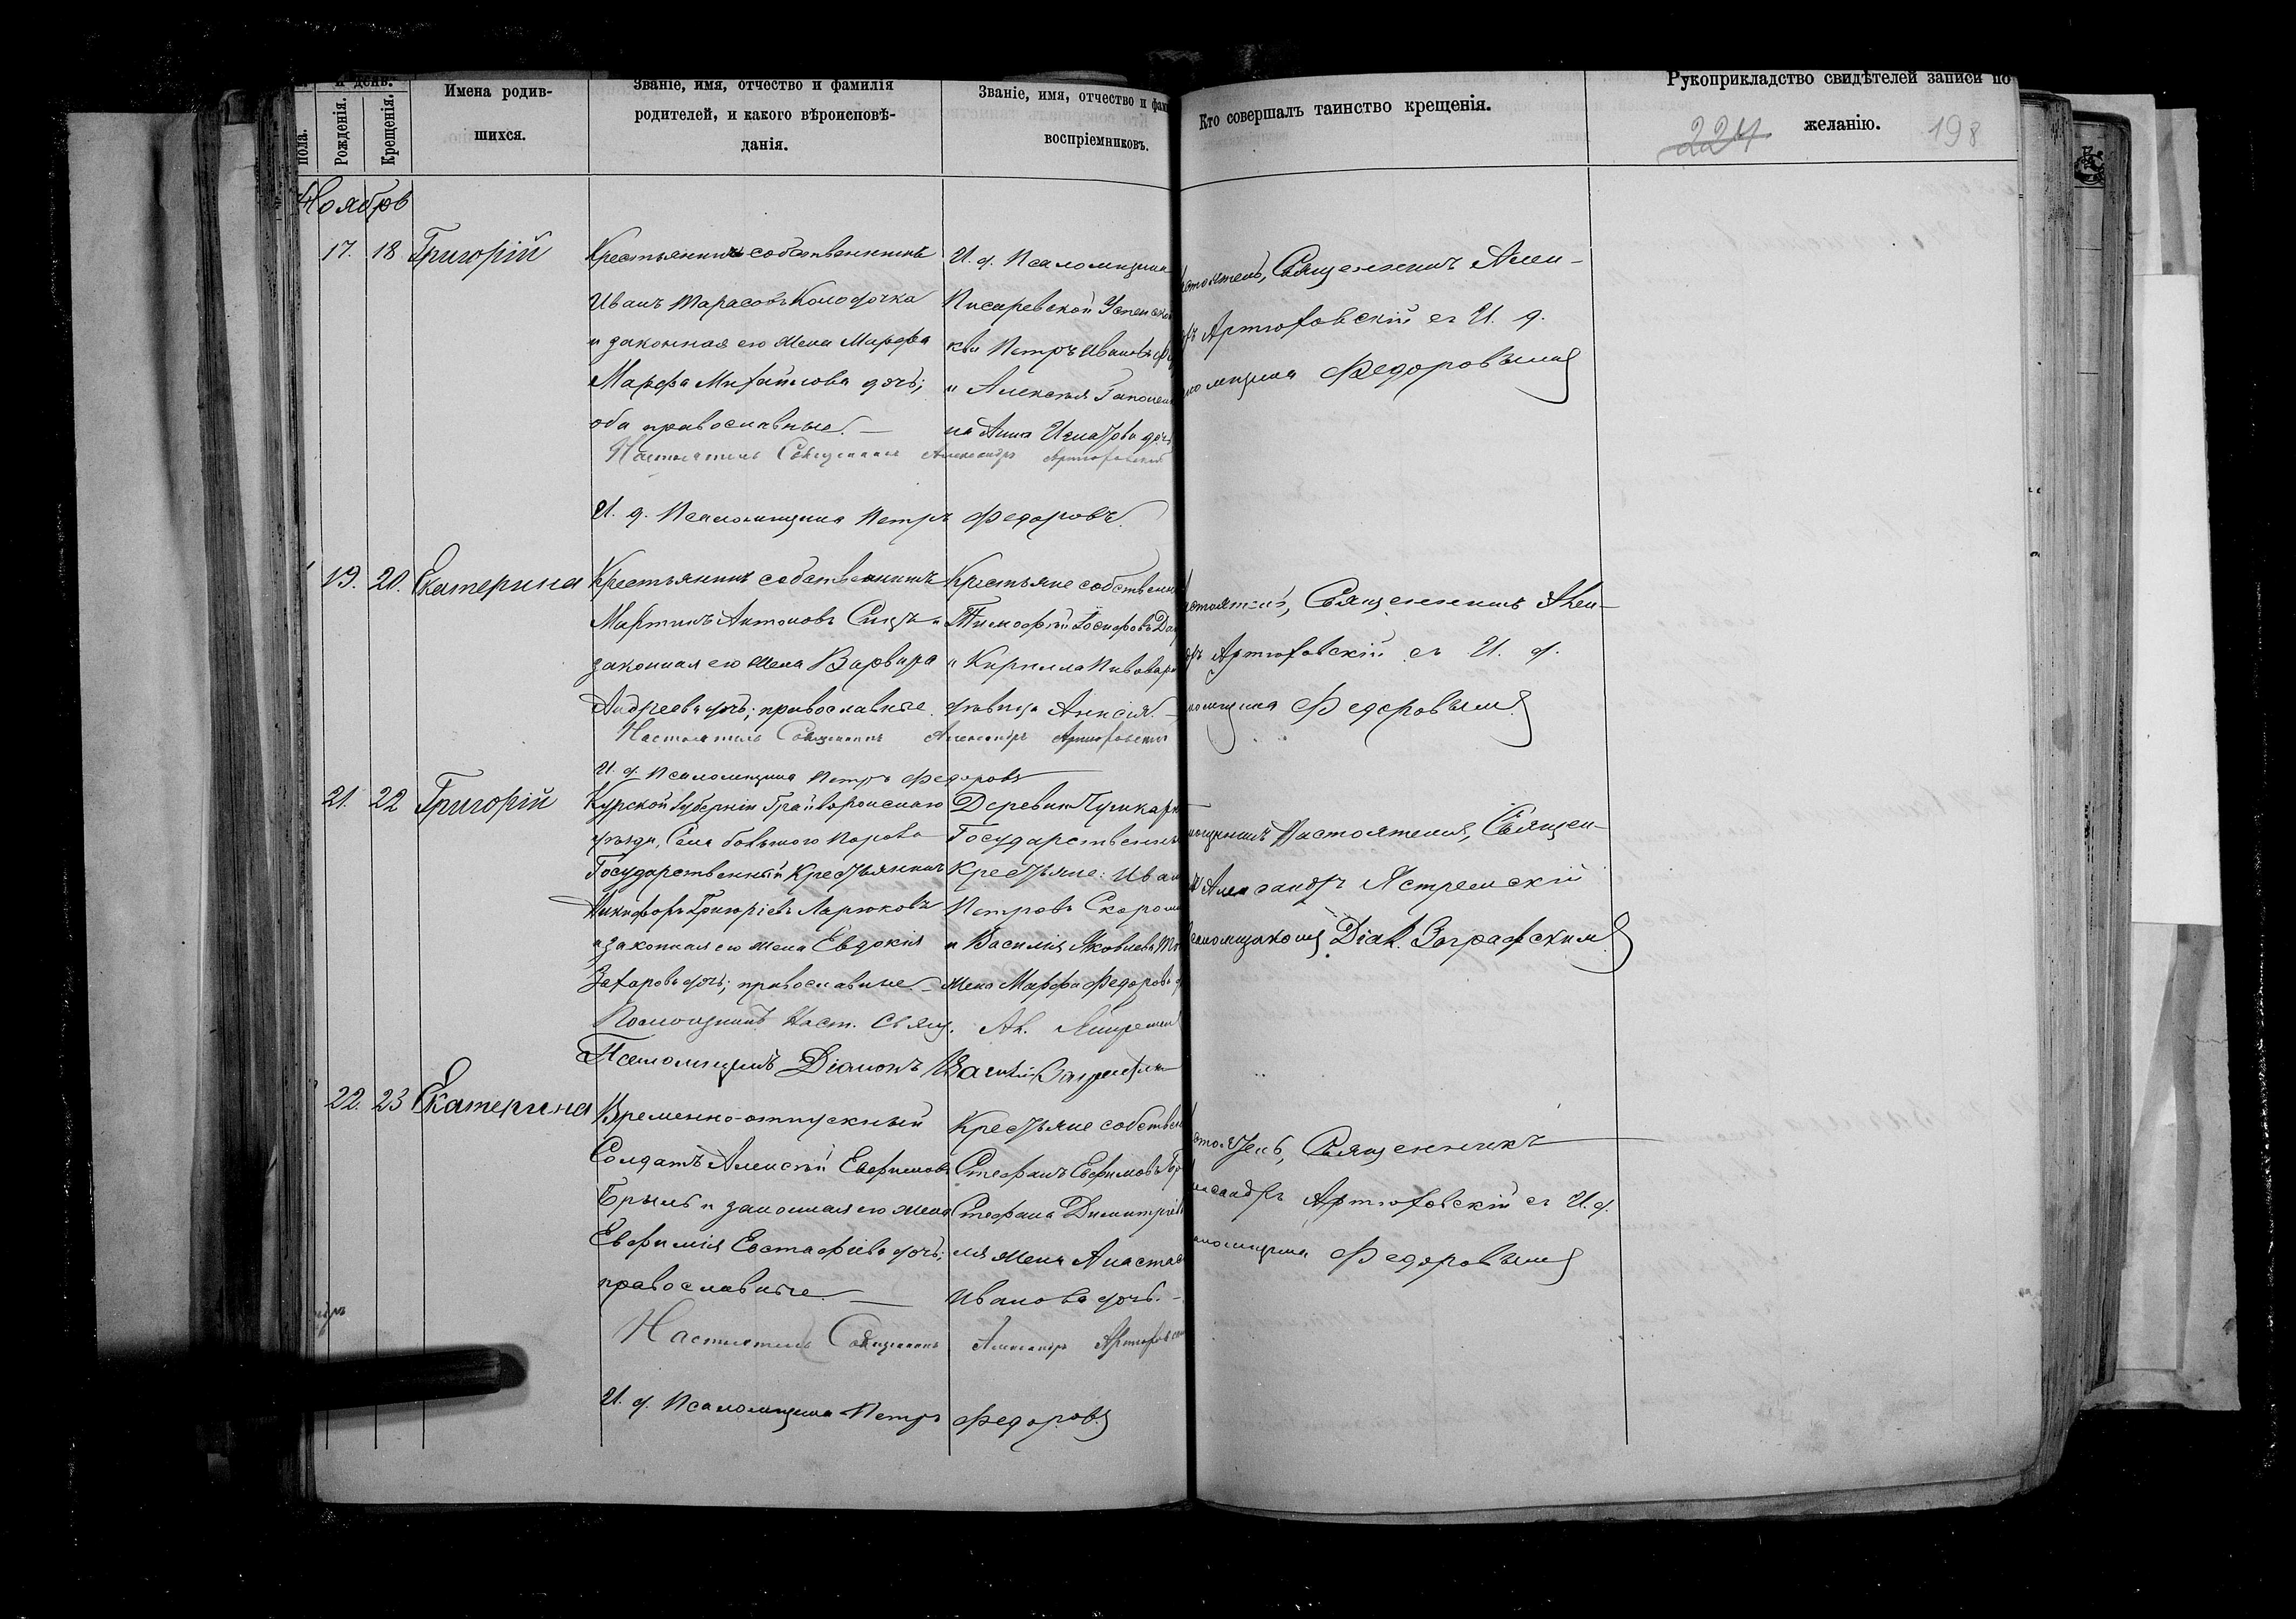 и день.
пола.
Рожденія.
Крещенія.
Имена родив-
шихся.
Званіе, имя, отчество и фамилія
родителей, и какого вѣроисповѣ-
данія.
Званіе, имя, отчество и фам
воспріемниковъ.
Кто совершалъ таинство крещенія.
Рукоприкладство свидѣтелей записи по
желанію.
224
198
Ноябрь
17. 18 Григорій
Крестьянинъ собственникъ
Иванъ Тарасовъ Колодочка
и законная его жена Марфа
Марфа Михайлова дочь;
оба православные. —
И. д. Псаломщика
Писаревской Успенской
кви Петръ Ивановъ
и Алексѣя
на Анна Игнатова дочь
Настоятель Священникъ Александръ Артюховскій
И. д. Псаломщика Петръ Федоровъ.
стоятель, Священникъ Алек-
дръ Артюховскій съ И. д.
ломщика Федоровымъ
19. 20. Екатерина
Крестьянинъ собственникъ
Мартинъ Антоновъ и
законная его жена Варвара
Андреева дочь; православные.
Крестьяне собственни
Тимофей Іосифовъ
и Кирилла Пивовара
дѣвица Анисія. —
Настоятель Священникъ Александръ Артюховскій
И. д. Псаломщика Петръ Федоровъ
стоятель, Священникъ Алек-
дръ Артюховскій съ И. д.
ломщика Федоровымъ
21. 22 Григорій
Курской Губерніи Грайворонскаго
уѣзда, Села большого
Государственный Крестьянинъ
Никифоръ Григорьевъ Ларюковъ
и законная его жена Евдокія
Захарова дочь; православные. —
Деревни Пушкарн
Государственные
Крестьяне: Иванъ
Петровъ
и Василія Яковлева
жена Марфа Федорова
Помощникъ Наст. Свящ. Ал. Ястремскій
Псаломщикъ Діаконъ Заграфскій
мощникъ Настоятеля, Священ-
Александръ Ястремскій
саломщикомъ Діак. Заграфскимъ
22. 23 Екатерина
Временно-отпускный
Солдатъ Алексѣй Евфимовъ
Брыль и законная его жена
Евфимія Евстафіева дочь;
православные. —
Крестьяне собствен
Стефанъ Евфимовъ
Стефана Димитріев
ля жена Анастас
Иванова дочь. —
Настоятель Священникъ Александръ Артюховскій
И. д. Псаломщика Петръ Федоровъ
стоятель, Священникъ
лександръ Артюховскій съ И. д.
аломщика Федоровымъ